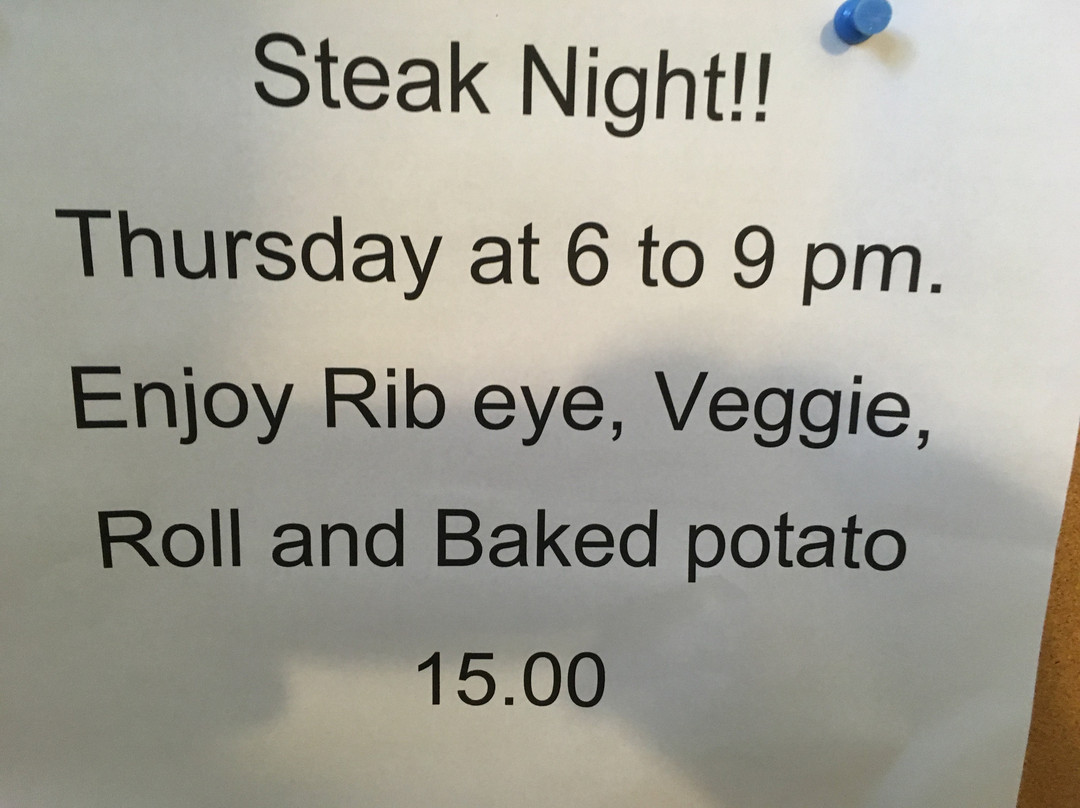 Steak Night!!
Thursday at 6 to 9 pm.
Enjoy Rib eye, Veggie,
Roll and Baked potato
15.00